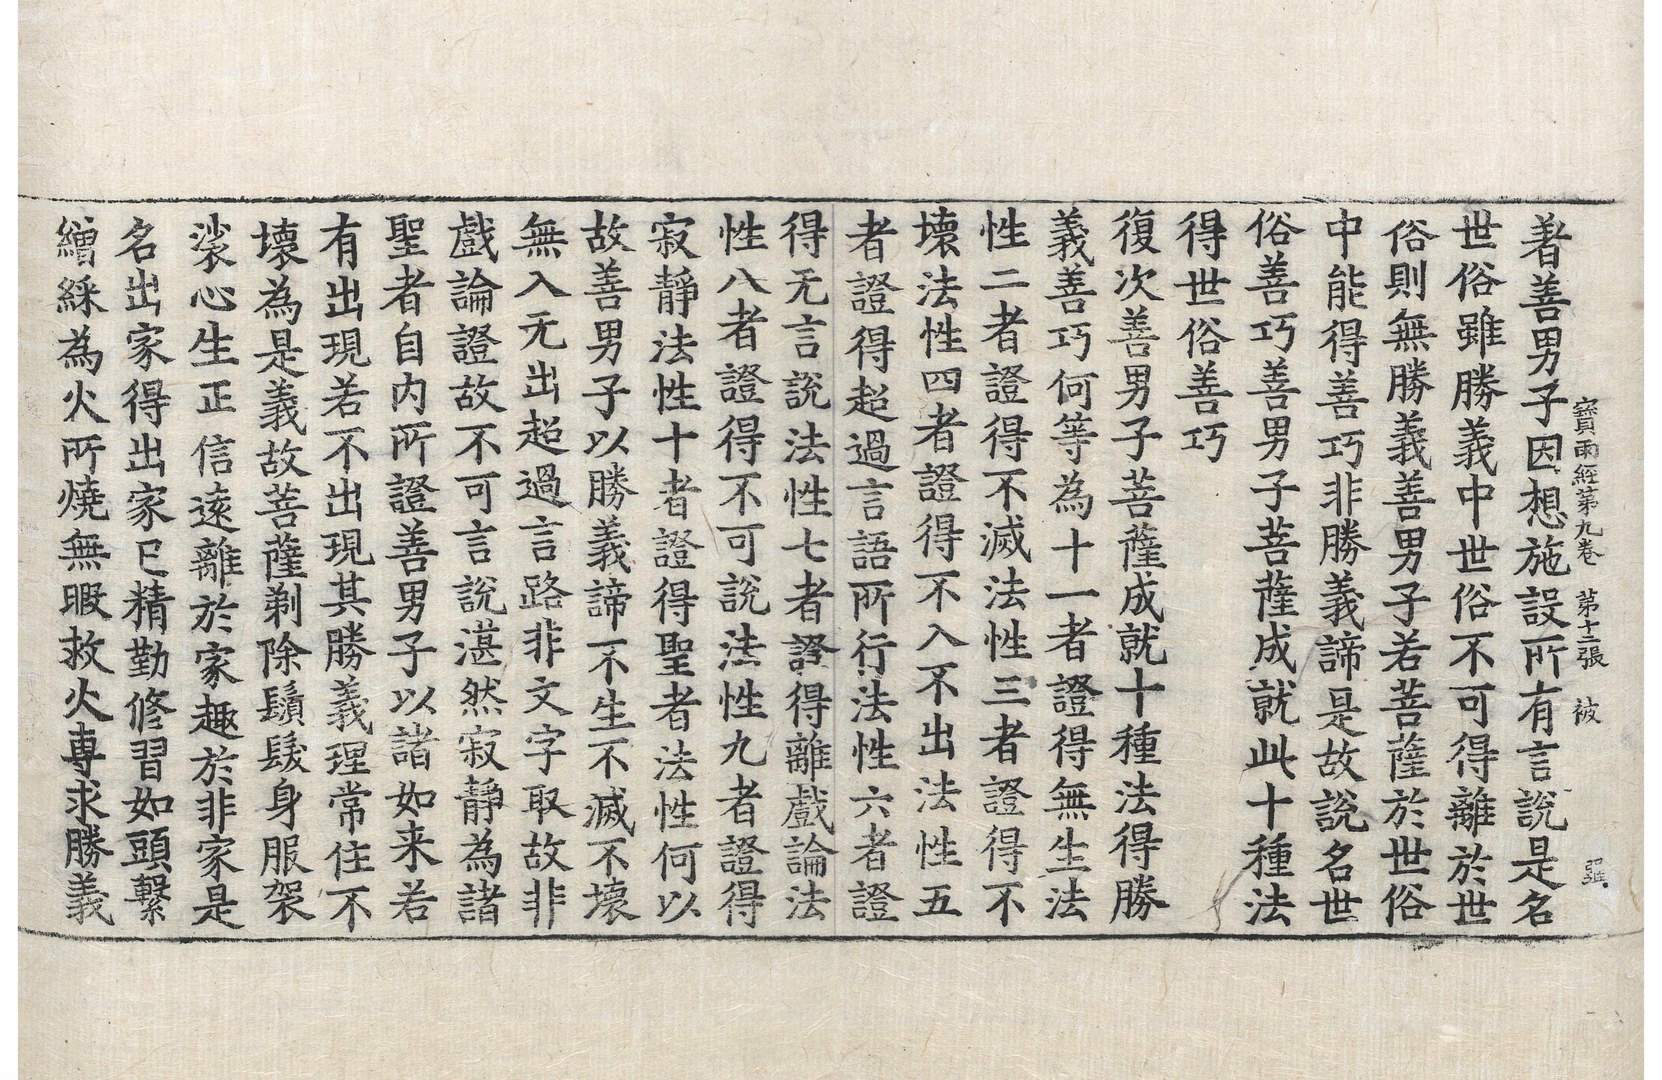 寶雨經第九卷 第十二張 被
者善男子因想施設所有言說是名
世俗雖勝義中世俗不可得離於世
俗則無勝義善男子若菩薩於世俗
中能得善巧非勝義諦是故說名世
俗善巧善男子菩薩成就此十種法
得世俗善巧
復次善男子菩薩成就十種法得勝
義善巧何等為十一者證得無生法
性二者證得不滅法性三者證得不
壞法性四者證得不入不出法性五
者證得超過言語所行法性六者證
得无言說法性七者證得離戲論法
性八者證得不可說法性九者證得
寂靜法性十者證得聖者法性何以
故善男子以勝義諦不生不滅不壞
無入无出超過言路非文字取故非
戲論證故不可言說湛然寂靜為諸
聖者自内所證善男子以諸如来若
有出現若不出現其勝義理常住不
壞為是義故菩薩剃除鬚髮身服袈
裟心生正信遠離於家趣於非家是
名出家得出家已精勤修習如頭繫
繒綵為火所燒無暇救火專求勝義